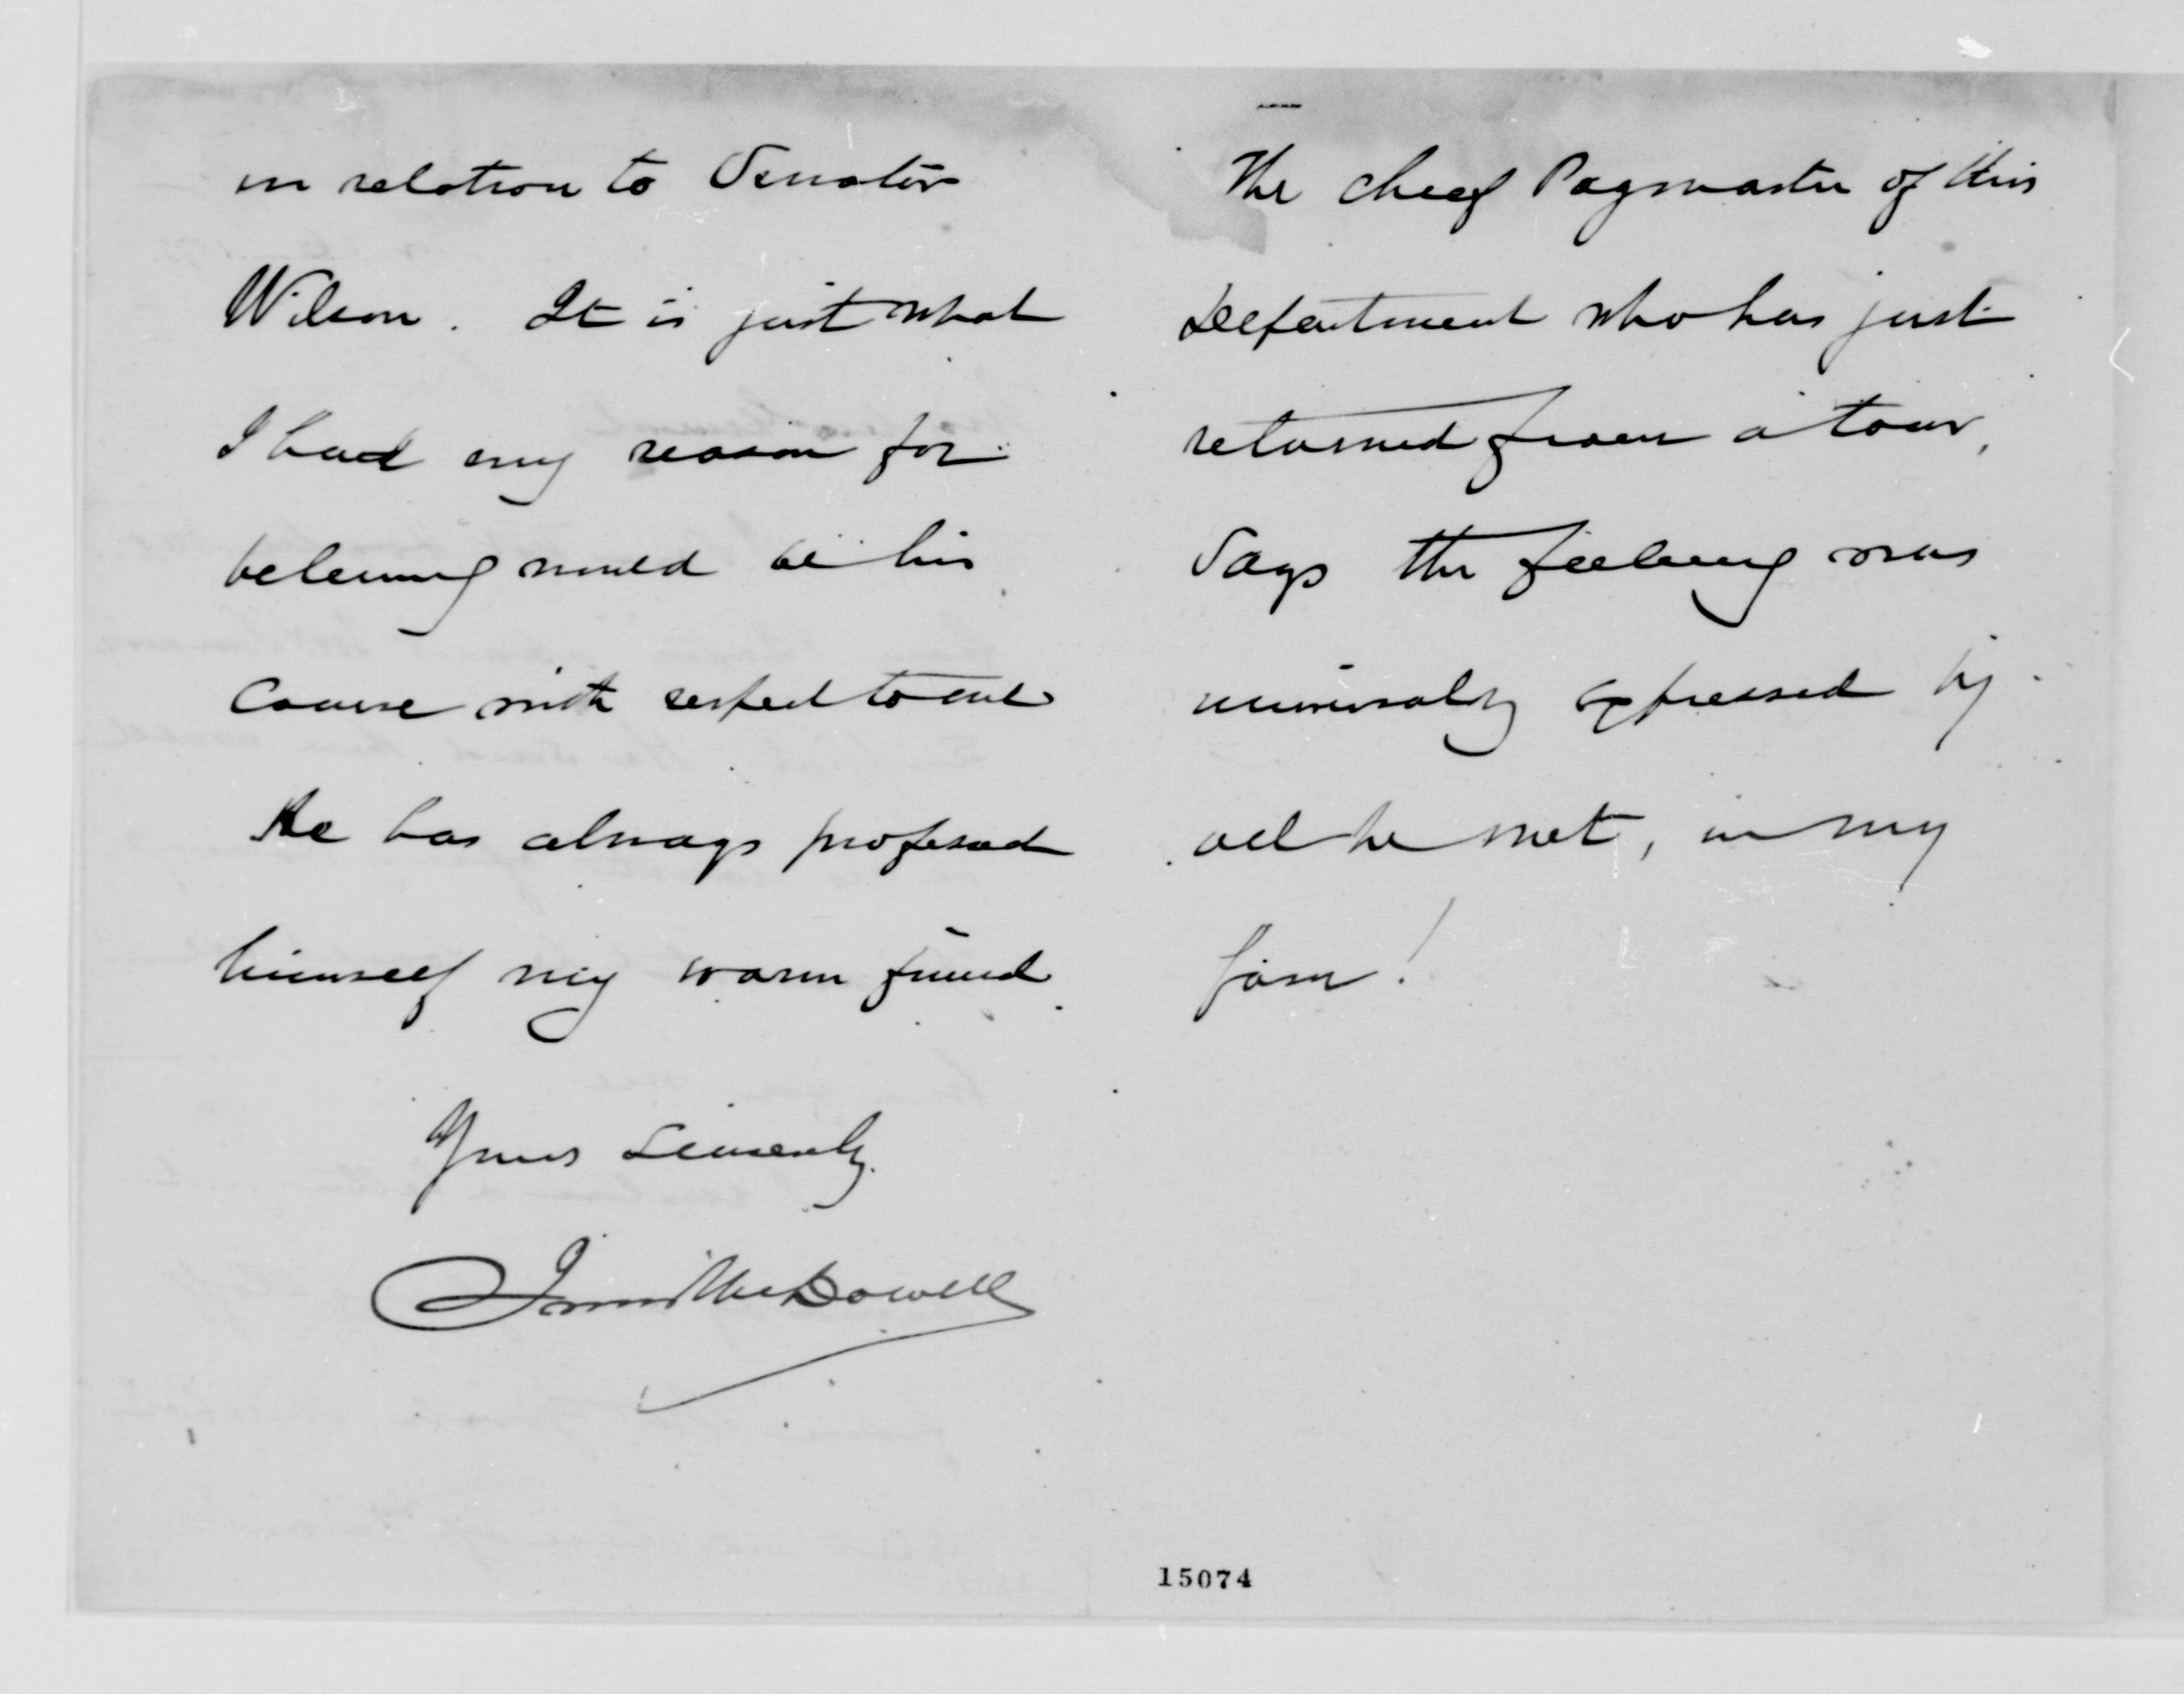 in relation to Senator
Wilson. It is just what
I had every reason for
believing would be his
course with respect to me
He has always professed
himself my warm friend
Yours Sincerely.
Irvin McDowell
The chief Paymaster of this
Department who has just
returned from a tour,
Says the feeling was
universally expressed by
all he met, in my
favor!
15074